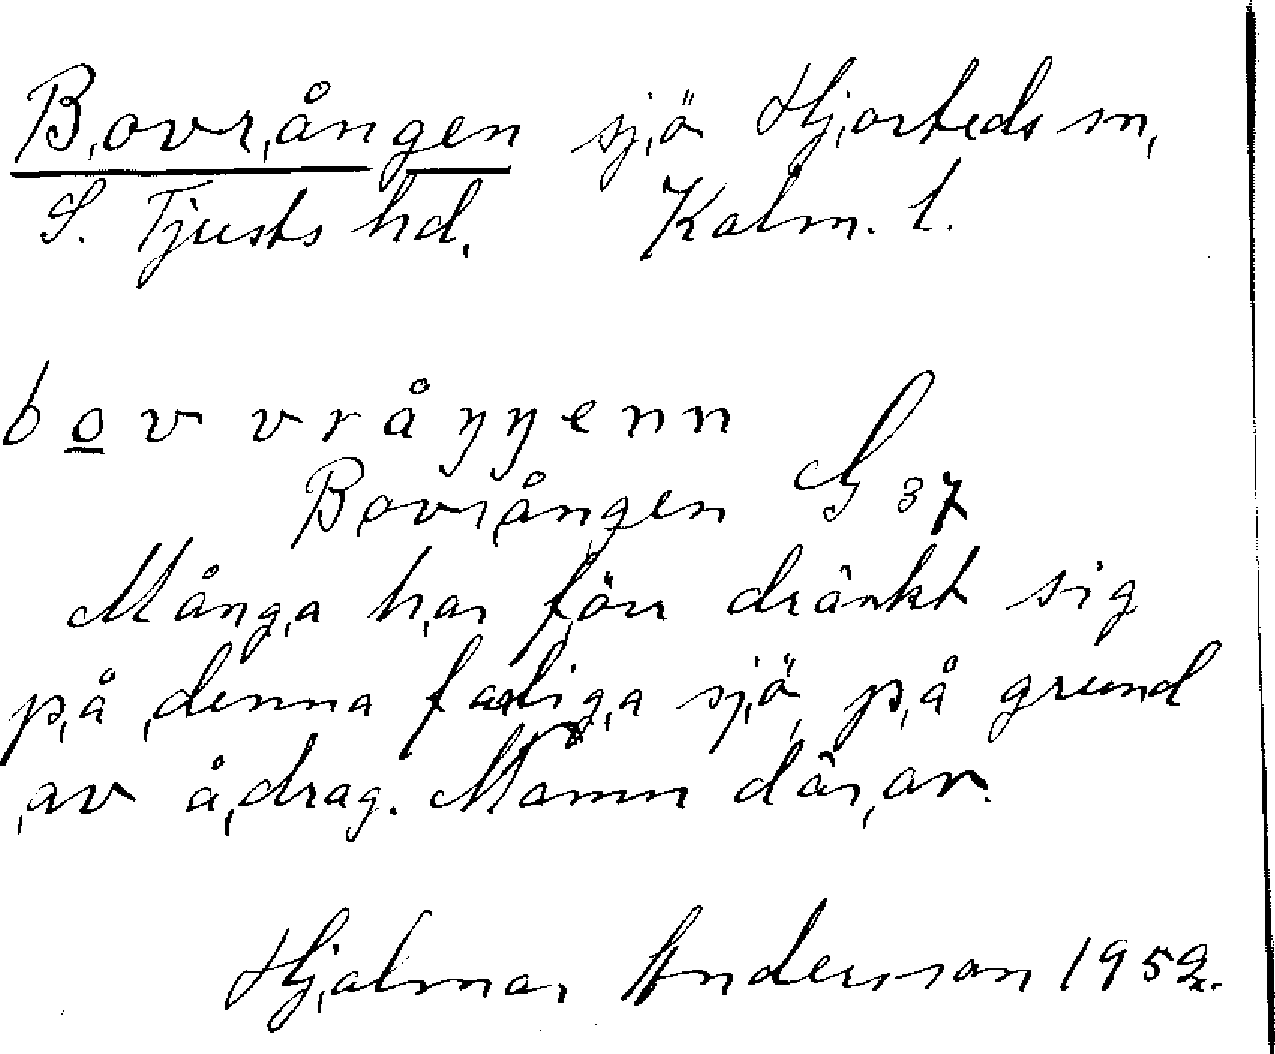 Bovrången sjö Hjorteds sn,
S. Tjusts hd. Kalm. l.
bov vråŋŋenn
Bovrången G 37
Många har förr dränkt sig
på denna farliga sjö på grund
av ådrag. Namn därav.
Hjalmar Andersson 1952.